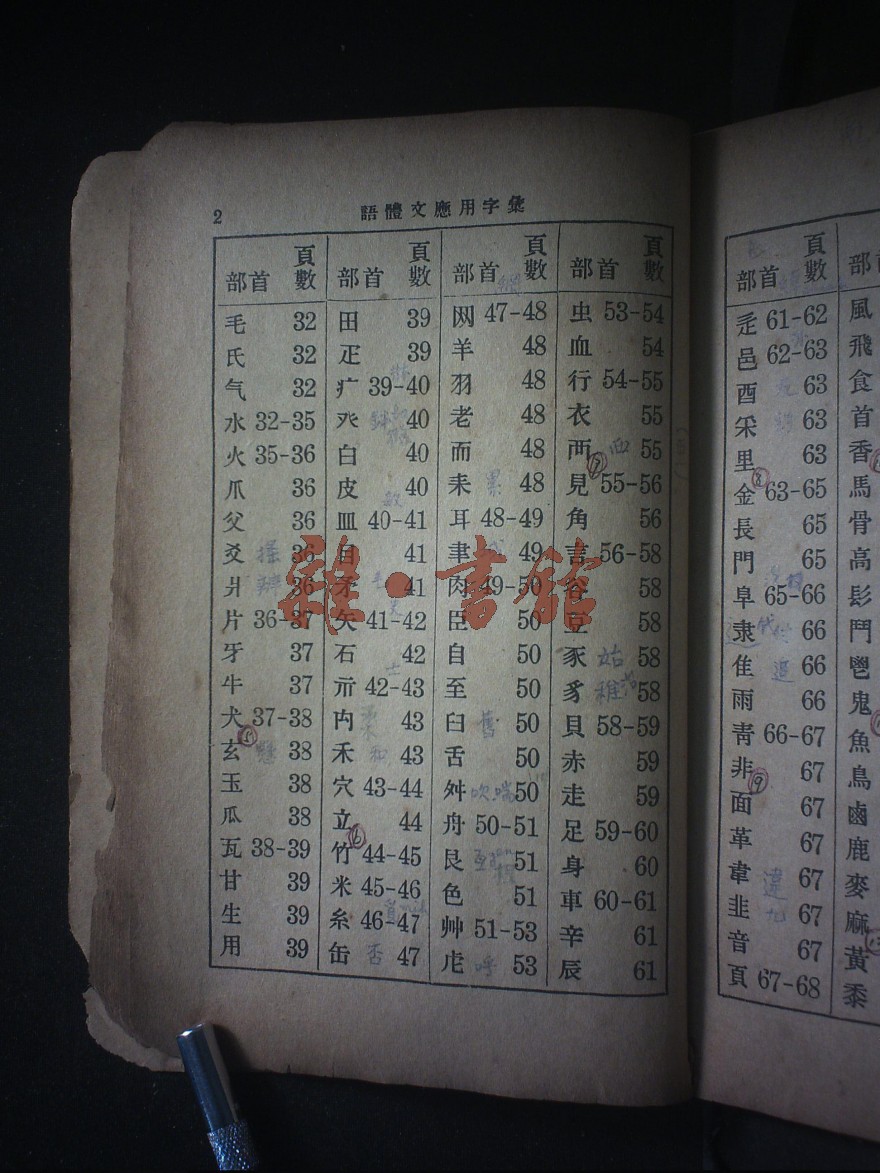 2
語體文應用字彙
部首 頁數
毛 32
氏 32
气 32
水 32-35
火 35-36
爪 36
父 36
爻 36
爿 36
片 36-37
牙 37
牛 37
犬 37-38
玄 38
玉 38
瓜 38
瓦 38-39
甘 39
生 39
用 39
部首 頁數
田 39
疋 39
疒 39-40
癶 40
白 40
皮 40
皿 40-41
目 41
矛 41
矢 41-42
石 42
示 42-43
禸 43
禾 43
穴 43-44
立 44
竹 44-45
米 45-46
糸 46-47
缶 47
部首 頁數
网 47-48
羊 48
羽 48
老 48
而 48
耒 48
耳 48-49
聿 49
肉 49-50
臣 50
自 50
至 50
臼 50
舌 50
舛 50
舟 50-51
艮 51
色 51
艸 51-53
虍 53
部首 頁數
虫 53-54
血 54
行 54-55
衣 55
襾 55
見 55-56
角 56
言 56-58
谷 58
豆 58
豕 58
豸 58
貝 58-59
赤 59
走 59
足 59-60
身 60
車 60-61
辛 61
辰 61
部首 頁數
辵 61-62
邑 62-63
酉 63
釆 63
里 63
金 63-65
長 65
門 65
阜 65-66
隶 66
隹 66
雨 66
靑 66-67
非 67
面 67
革 67
韋 67
韭 67
音 67
頁 67-68
部
風
飛
食
首
香
馬
骨
高
髟
鬥
鬯
鬼
魚
鳥
鹵
鹿
麥
麻
黃
黍
雜·書館